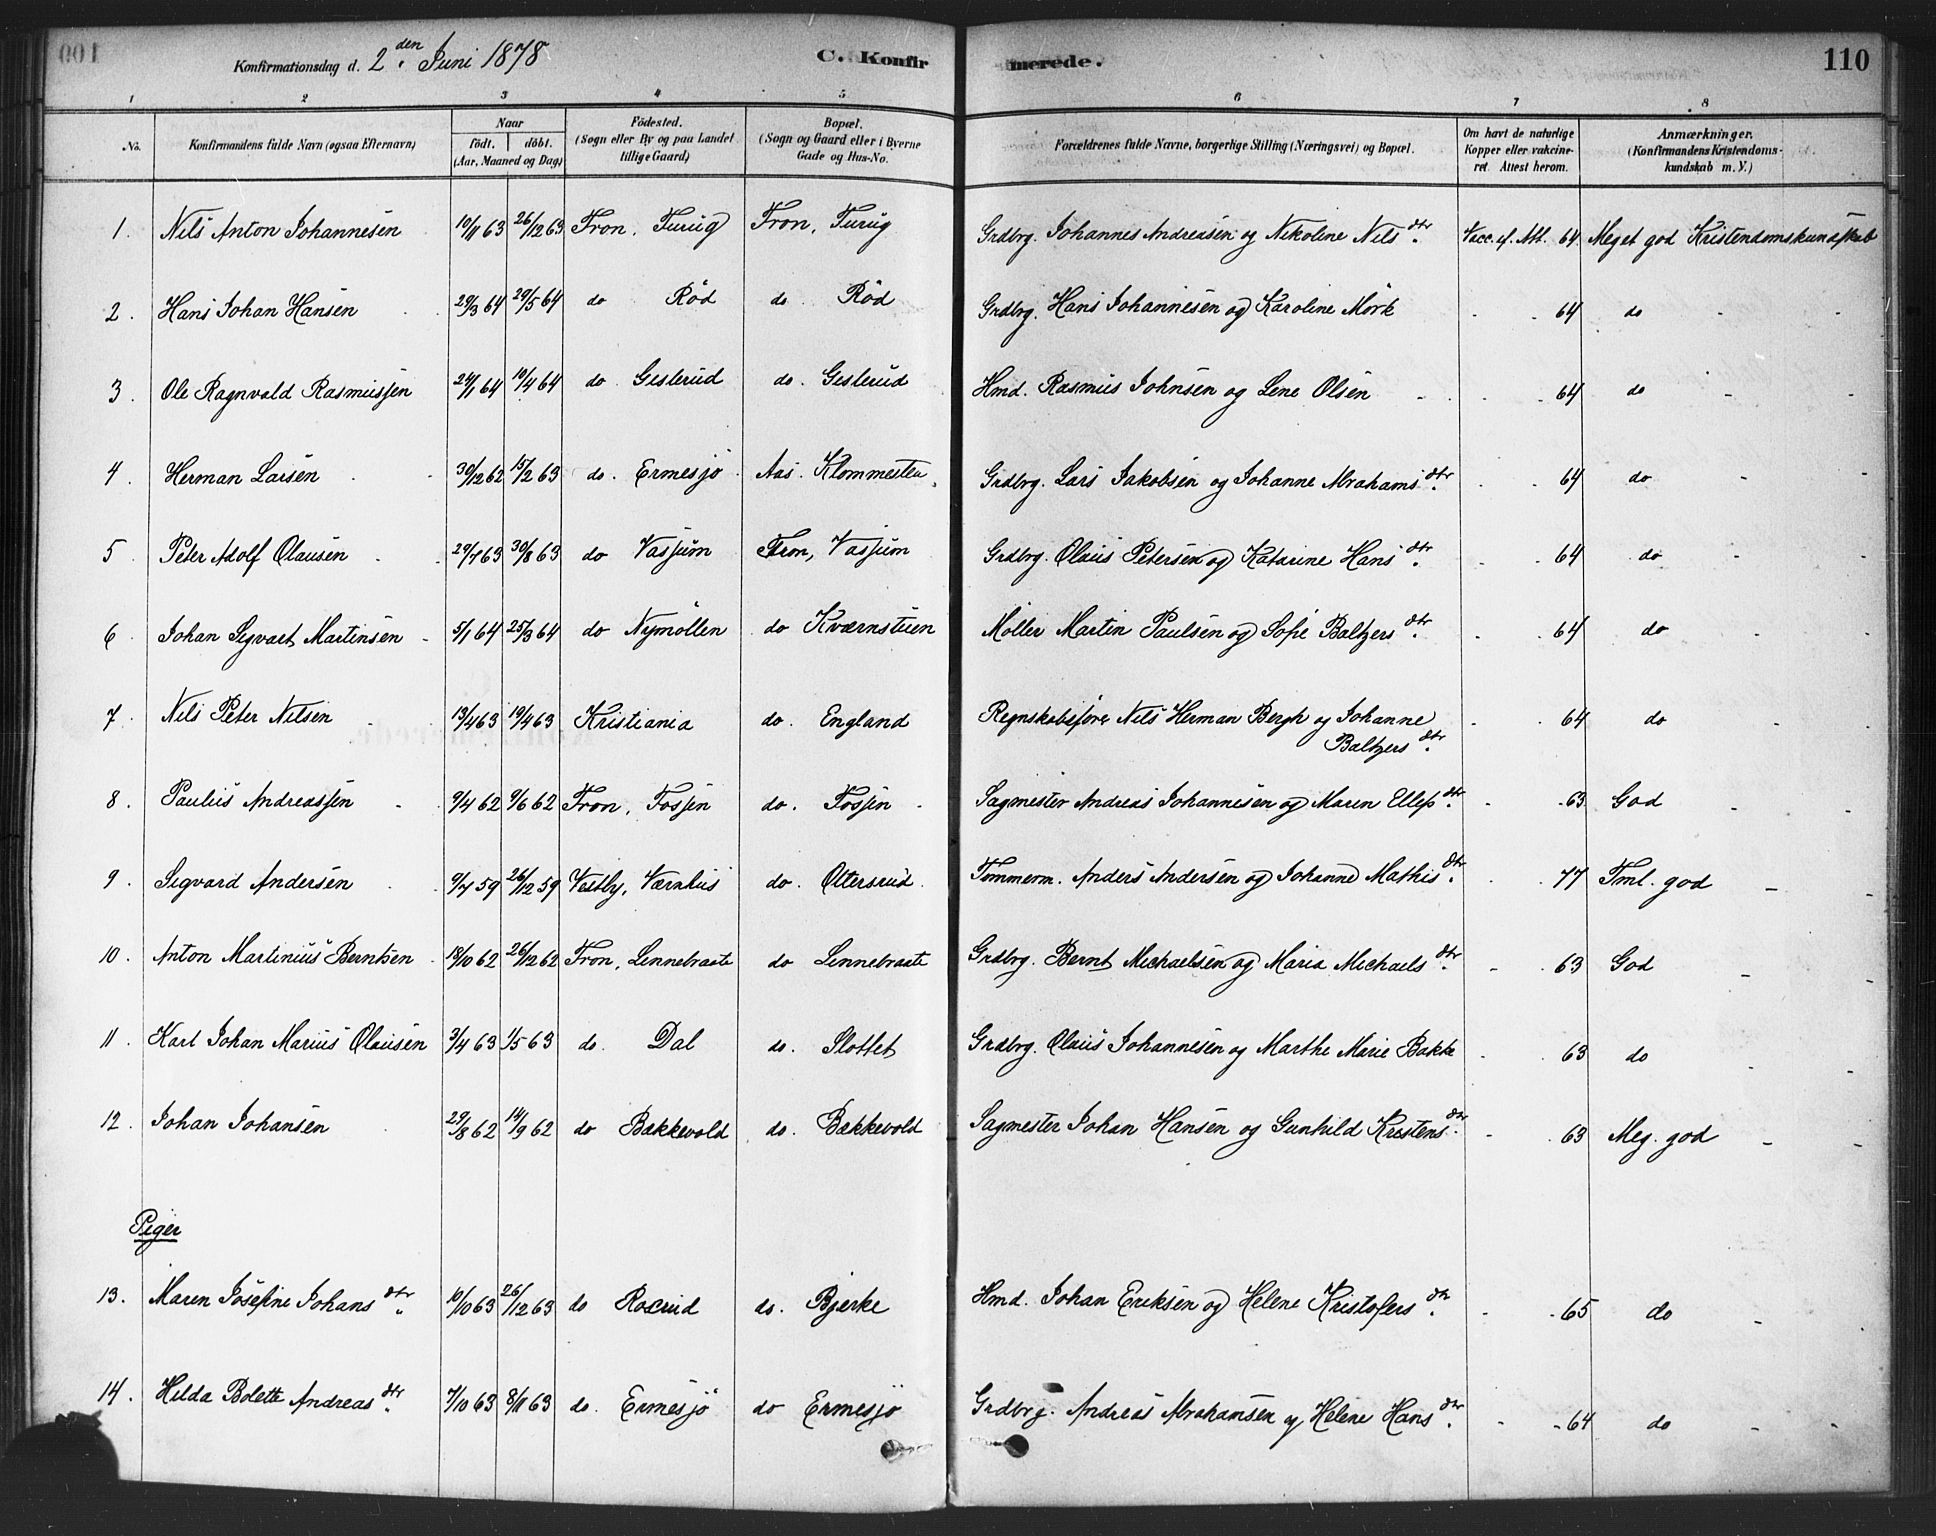 Konfirmationsdag d. 2.den Juni 1878 C. Konfirmerede. 110
1 2 3 4 5 6 7 8
No. Konfirmandens fulde Navn (ogsaa Efternavn) Naar födt. döbt. (Aar, Maaned og Dag) Födested. (Sogn eller By og paa Landet tillige Gaard) Bopæl. (Sogn og Gaard eller i Byerne Gade og Hus-No. Forældrenes fulde Navne, borgerlige Stilling (Næringsvei) og Bopæl. Om havt de naturlige Kopper eller vakcineret. Attest herom. Anmærkninger. (Konfirmandens Kristendomskundskab m. V.)
1. Nils Anton Johannesen 10/11 63 26/12 63 Fron, Turug Fron, Turug Grdbrg. Johannes Andreasen og Nikoline Nils dtr. Vacc. ef. Att. 64 Meget god Kristendomskundskab
2. Hans Johan Hansen 29/3 64 29/5 64 do Röd do Röd Grdbrg. Hans Johannesen og Karoline Mörk - - 64 do - -
3. Ole Ragnvald Rasmussen 24/1 64 10/4 64 do Gislerud do. Gislerud Hmd. Rasmus Johnsen og Lene Olsen - - 64 do - -
4. Herman Larsen 30/12 62 15/2 63 do. Ermesjö Aas. Klommesten Grdbrg. Lars Jakobsen og Johanne Abrahams dtr. - - 64 do - -
5 Peter Adolf Olausen 29/7 63 30/8 63 do Vassum Fron, Vassum Grdbrg. Olaus Petersen og Katarine Hans dtr. - - 64 do - -
6 Johan Sigvart Martinsen 5/1 64 25/3 64 do Nymöllen do Kværnstuen Möller Martin Paulsen og Sofie Baltzers dtr. - - 64 do - -
7. Nils Peter Nilsen 13/4 63 19/4 63 Kristiania do. England Regnskabsförer Nils Herman Bergh og Johanne Baltzers dtr. - - 64 do - -
8. Paulus Andreassen 9/4 62 9/6 62 Fron, Fossen do. Fossen Sagmester Andreas Johannesen og Maren Ellefs dtr. - - 63 God -
9. Sigvard Andersen 9/7 59 26/12 59 Vestby, Værnhus do. Ottersrud Tömmerm. Anders Andersen og Johanne Mathis dtr. - - 77 Tml. god -
10. Anton Martinius Berntsen 18/10 62 26/12 62 Fron, Linnebraate do Linnebraate Grdbrg. Bernt Michaelsen og Maria Michaels dtr. - - 63 God -
11. Karl Johan Marius Olausen 3/4 63 1/5 63 do. Dal do. Slottet Grdbrg. Olaus Johannesen og Marthe Marie Bakke - - 63 do - -
12. Johan Johansen 29/8 62 14/9 62 do Bækkevold do. Bækkevold Sagmester Johan Hansen og Gunhild Kristens dtr. - - 63 Meg. god - -
Piger
13. Maren Josefine Johans dtr. 10/10 63 26/12 63 do do. Bjerke Hmd. Johan Eriksen og Helene Kristofers dtr. - - 65 do -
14. Hilda Bolette Andreas dtr. 7/10 63 8/11 63 do. Ermesjö do Ermesjö Grdbrg. Andreas Abrahamsen og Helene Hans dtr. - - 64 do - -